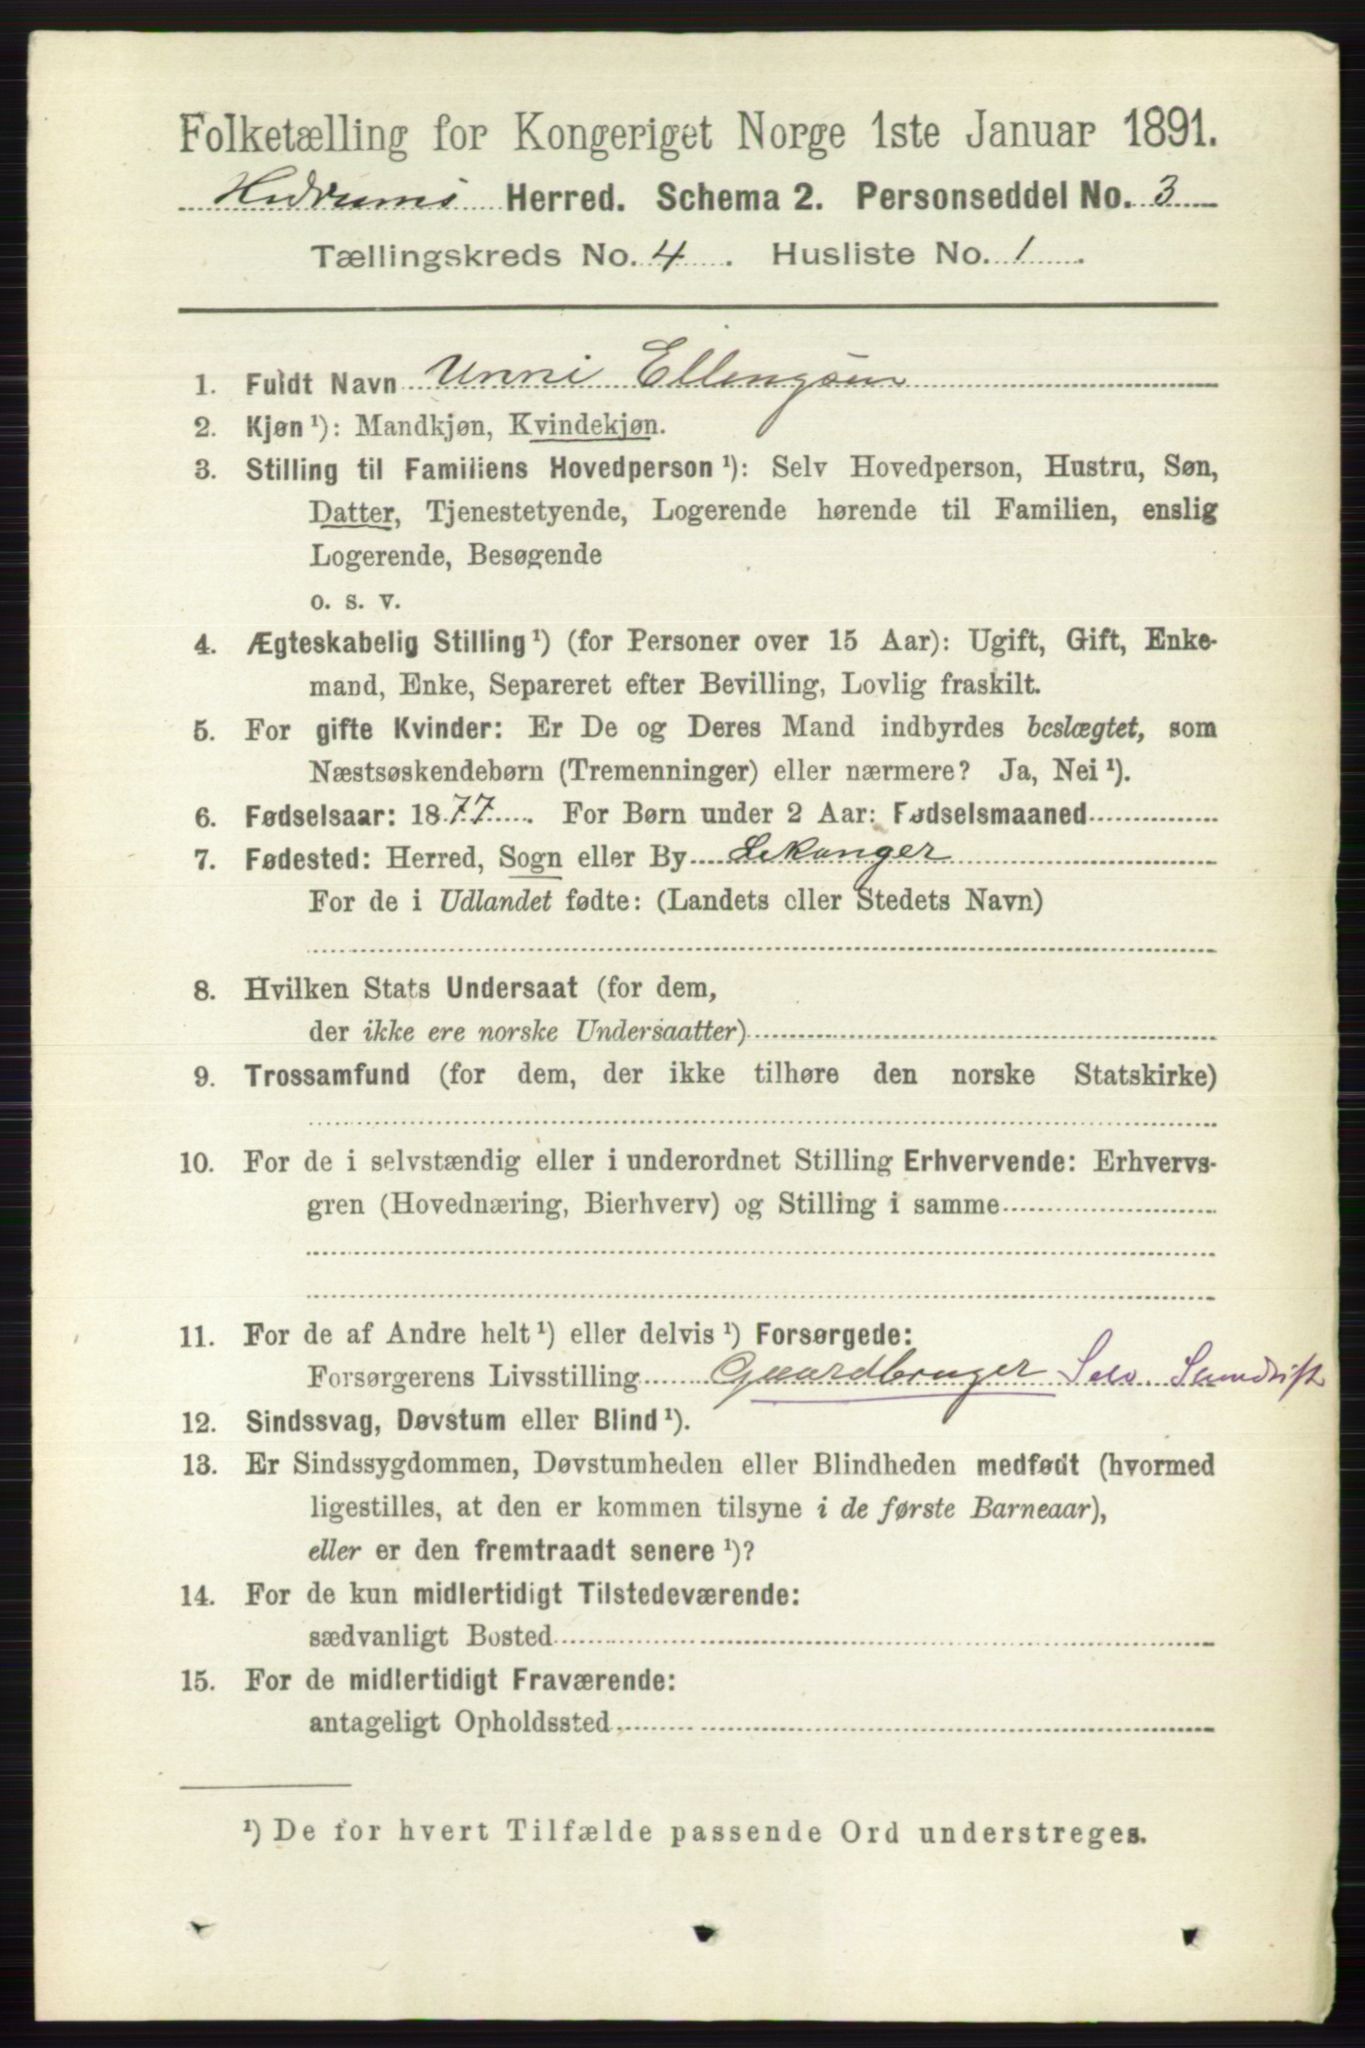 Folketælling for Kongeriget Norge 1ste Januar 1891.
Hedrums Herred. Schema 2. Personseddel No. 3
Tællingskreds No. 4. Husliste No. 1.
1. Fuldt Navn Unni Ellingsen
2. Kjøn ¹): Mandkjøn, Kvindekjøn.
3. Stilling til Familiens Hovedperson ¹): Selv Hovedperson, Hustru, Søn,
Datter, Tjenestetyende, Logerende hørende til Familien, enslig
Logerende, Besøgende
o. s. v.
4. Ægteskabelig Stilling ¹) (for Personer over 15 Aar): Ugift, Gift, Enke-
mand, Enke, Separeret efter Bevilling, Lovlig fraskilt.
5. For gifte Kvinder: Er De og Deres Mand indbyrdes beslægtet, som
Næstsøskendebørn (Tremenninger) eller nærmere? Ja, Nei ¹).
6. Fødselsaar: 1877. For Børn under 2 Aar: Fødselsmaaned
7. Fødested: Herred, Sogn eller By Lekanger
For de i Udlandet fødte: (Landets eller Stedets Navn)
8. Hvilken Stats Undersaat (for dem,
der ikke ere norske Undersaatter)
9. Trossamfund (for dem, der ikke tilhøre den norske Statskirke)
10. For de i selvstændig eller i underordnet Stilling Erhvervende: Erhvervs-
gren (Hovednæring, Bierhverv) og Stilling i samme
11. For de af Andre helt ¹) eller delvis ¹) Forsørgede:
Forsørgerens Livsstilling Gaardbruger Selv
12. Sindssvag, Døvstum eller Blind ¹).
13. Er Sindssygdommen, Døvstumheden eller Blindheden medfødt (hvormed
ligestilles, at den er kommen tilsyne i de første Barneaar),
eller er den fremtraadt senere ¹)?
14. For de kun midlertidigt Tilstedeværende:
sædvanligt Bosted
15. For de midlertidigt Fraværende:
antageligt Opholdssted
¹) De for hvert Tilfælde passende Ord understreges.